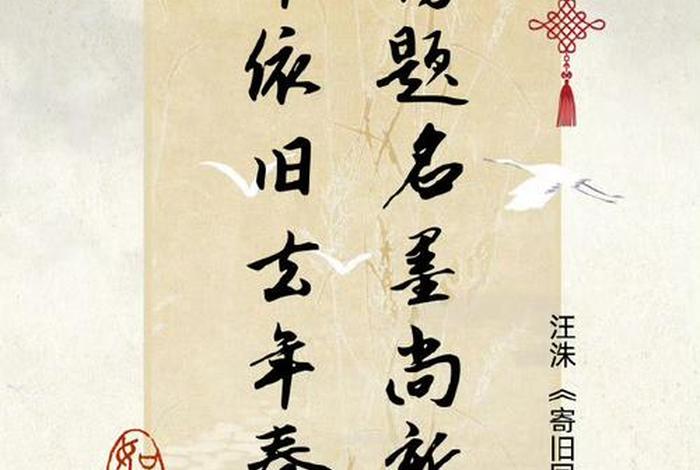 汪洙《寄旧
题名墨尚新
依旧去年春
如